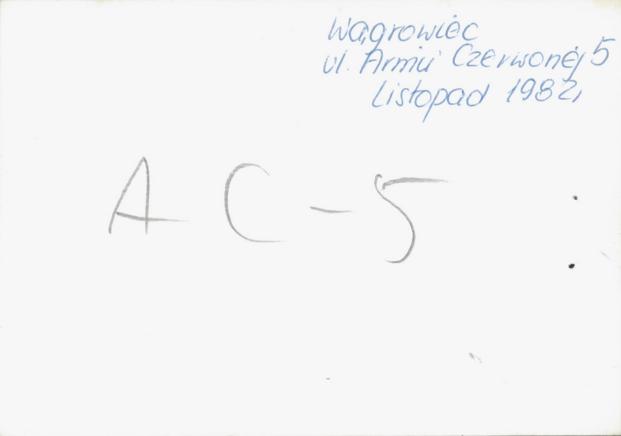 Wągrowiec
ul. Armii Czerwonej 5
Listopad 1982r
A C - 5